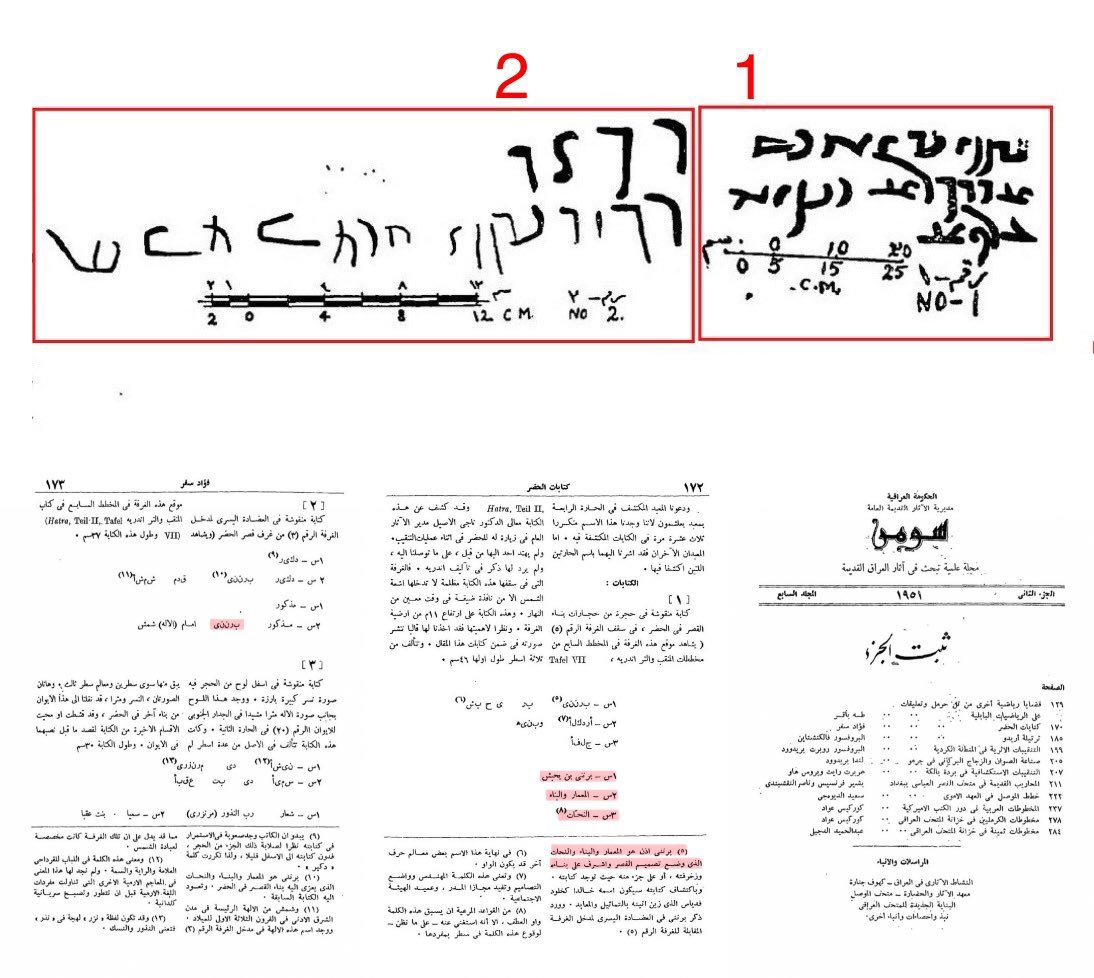 1
2
0 10 20
0 5 15 25
C.M.
رقم - ١
NO-1
٢ ١ ٤ ٨ ١٢ سم
2 0 4 8 12 C M.
رقم - ٢
NO 2.
الحكومة العراقية
مديرية الآثار القديمة العامة
سومر
مجلة علمية تبحث في آثار العراق القديمة
الجزء الثاني ١٩٥١ المجلد السابع
ثبت الجزء
الصفحة
١٢٩ قضايا رياضية أخرى من تل حرمل وتعليقات
على الرياضيات البابلية طه باقر
١٧٠ كتابات الحضر فؤاد سفر
١٨٥ ترتيلة أريدو البروفسور فالكنشتاين
١٩٩ التنقيبات الاثرية في المنطقة الكردية البروفسور روبرت بريدوود
٢٠٥ صناعة الصوان والزجاج البركاني في جرمو لندا بريدوود
٢٠٧ التنقيبات الاستكشافية في بردة بالكة هربرت رايت وبروس هاو
٢١١ المحاريب القديمة في متحف القصر العباسي ببغداد بشير فرنسيس وناصر النقشبندي
٢٢٢ خطط الموصل في العهد الاموي سعيد الديوهجي
٢٣٧ المخطوطات العربية في دور الكتب الاميركية كوركيس عواد
٢٧٨ مخطوطات الكرمليين في خزانة المتحف العراقي كوركيس عواد
٢٨٤ مخطوطات ثمينة في خزانة المتحف العراقي عبدالحميد الدجيل
المراسلات والانباء
النشاط الآثاري في العراق ــ كهوف جنارة
معهد الآثار والحضارة ــ متحف الموصل
البناية الجديدة للمتحف العراقي
نبذ واحصاءات وأنباء أخرى
١٧٢ كتابات الحضر
ودعونا المعبد المكتشف في الحارة الرابعة
بمعبد بعلشمون لاننا وجدنا هذا الاسم متكررا
ثلاث عشرة مرة في الكتابات المكتشفة فيه • اما
المعبدان الآخران فقد اشرنا اليهما باسم الحارتين
اللتين اكتشفا فيها •
الكتابات :
[ ١ ]
كتابة منقوشة في حجرة من حجارات بناء
القصر في الحضر ، في سقف الغرفة الرقم (٥)
( يشاهد موقع هذه الغرفة في المخطط السابع من
مخططات المنقب والتر اندريه ، Tafel VII
Hatra, Teil II, وقد كشف عن هذه
الكتابة معالي الدكتور ناجي الاصيل مدير الآثار
العام في زيارة له للحضر في اثناء عمليات التنقيب •
ولم يهتد احد اليها من قبل ، على ما توصلنا اليه ،
ولم يرد لها ذكر في تآليف اندريه • فالغرفة
التي في سقفها هذه الكتابة مظلمة لا تدخلها اشعة
الشمس الا من نافذة ضيقة في وقت معين من
النهار • وهذه الكتابة على ارتفاع ١١م من ارضية
الغرفة • ونظرا لاهميتها فقد اخذنا لها قالبا ننشر
صورته في ضمن كتابات هذا المقال • وتتألف من
ثلاثة اسطر طول اولها ٤٦سم •
١س ــ برننى(٥) بر ى ح ب ش(٦)
٢س ــ أردكلأ(٧) وبنىه
٣س ــ جلفأ
١س ــ برنني بن يحيش
٢س ــ المعمار والبناء
٣س ــ النحات(٨)
(٥) برنني اذن هو المعمار والبناء والنحات
الذي وضع تصميم القصر واشرف على بناءه
وزخرفته ، أو على جزء منه حيث توجد كتابته •
وباكتشاف كتابته سيكون اسمه خالدا كخلود
فدياس الذي زين اثينه بالتماثيل والمعابد • وورد
ذكر برنني في العضادة اليسرى لمدخل الغرفة
المقابلة للغرفة الرقم (٥) •
(٦) في نهاية هذا الاسم بعض معالم حرف
آخر قد يكون الواو •
(٧) وتعني هذه الكلمة المهندس وواضع
التصاميم وتفيد مجازا المدبر ، وعميد الهيئة
الاجتماعية •
(٨) من القواعد المرعية ان يسبق هذه الكلمة
واو العطف ، الا أنه استغنى عنه ــ على ما نظن ــ
لوقوع هذه الكلمة في سطر بمفردها •
فؤاد سفر ١٧٣
[ ٢ ]
كتابة منقوشة في العضادة اليسرى لمدخل
الغرفة الرقم (٣) من غرف قصر الحضر (ويشاهد
موقع هذه الغرفة في المخطط السابع في كتاب
المنقب والتر اندريه Hatra, Teil II, Tafel)
VII) وطول هذه الكتابة ٣٧سم •
١س ــ دكىر(٩)
٢ س ــ دكىر برننى(١٠) قدم شمش(١١)
١س ــ مذكور
٢س ــ مذكور برننى امام (الاله) شمش
[ ٣ ]
كتابة منقوشة في اسفل لوح من الحجر فيه
صورة نسر كبيرة بارزة • ووجد هذا اللوح
بجانب صورة الاله مثرا مشيدا في الجدار الجنوبي
للايوان (الرقم (٢٠) في الحارة الثانية • وكانت
هذه الكتابة تتألف في الاصل من عدة اسطر لم
يبق منها سوى سطرين ومعالم سطر ثالث • وهاتان
الصورتان ، النسر ومثرا ، قد نقلتا الى هذا الايوان
من بناء آخر في الحضر ، وقد قشطت او محيت
الاقسام الاخيرة من الكتابة لقصد ما قبل نصبهما
في الايوان • وطول الكتابة ٣٠سم •
١س ــ نىشأ(١٢) دى مرنزرى(١٣)
٢س ــ سمىأ دى بت عقبأ
١س ــ شعار رب النذور (مرنزري)
٢س ــ سميا • بنت عقبا
(٩) يبدو ان الكاتب وجد صعوبة في الاستمرار
في كتابته نظرا لصلابة ذلك الجزء من الحجر ،
فدون كتابته الى الاسفل قليلا ، ولذا تكررت كلمة
« دكير » •
(١٠) برنني هو المعمار والبناء والنحات
الذي يعزى اليه بناء القصر في الحضر • وتعود
اليه الكتابة السابقة •
(١١) وشمش من الالهة الرئيسة في مدن
الشرق الادنى في القرون الثلاثة الاولى للميلاد •
ووجد اسم هذه الالهة في مدخل الغرفة الرقم (٣)
مما قد يدل على ان تلك الغرفة كانت مخصصة
لعبادة الشمس •
(١٢) ومعنى هذه الكلمة في اللباب للقرداحي
العلامة والراية والسمة • ولم نجد لها هذا المعنى
في المعاجم الارمية الاخرى التي تناولت مفردات
اللغة الارمية قبل ان تتطور وتصبح سريانية
كلدانية •
(١٣) وقد تكون لفظة « نزر » لهجة في « نذر »
فتعني النذور والنسك •